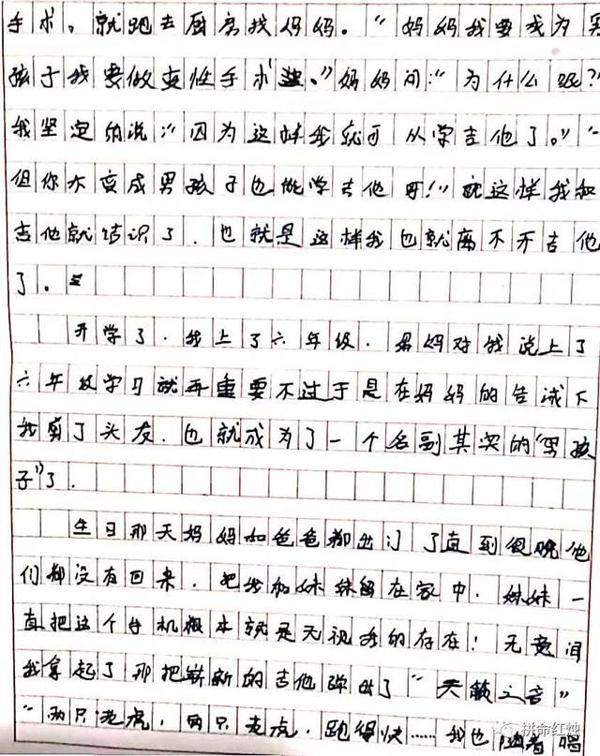 手术。就跑去厨房找妈妈。“妈妈我要成为男
孩子我要做变性手术。”妈妈问：“为什么呢？”
我坚定的说：“因为这样我就可以学吉他了。”“
但你不变成男孩子也能学吉他呀！”就这样我和
吉他就结识了，也就是这样我也就离不开吉他
了。
开学了，我上了六年级，妈妈对我说上了
六年级学习就再重要不过于是在妈妈的告诫下
我剪了头发，也就成为了一个名副其实的“男孩
子”了。
生日那天妈妈和爸爸都出门了直到很晚他
们都没有回来，把我和妹妹留在家中，妹妹一
直把这个手机根本就是无视我的存在！无意间
我拿起了那把崭新的吉他弹出了“天籁之音”
“两只老虎，两只老虎，跑得快……我也随着唱
挑命红烛